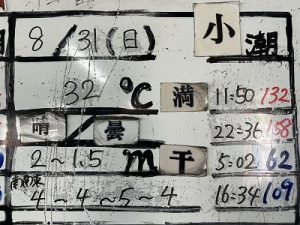 8/31(日) 小潮
32℃ 満 11:50/132
晴/曇 22:36/158
2~1.5m 干 5:02/62
4~4~5~4 16:34/109